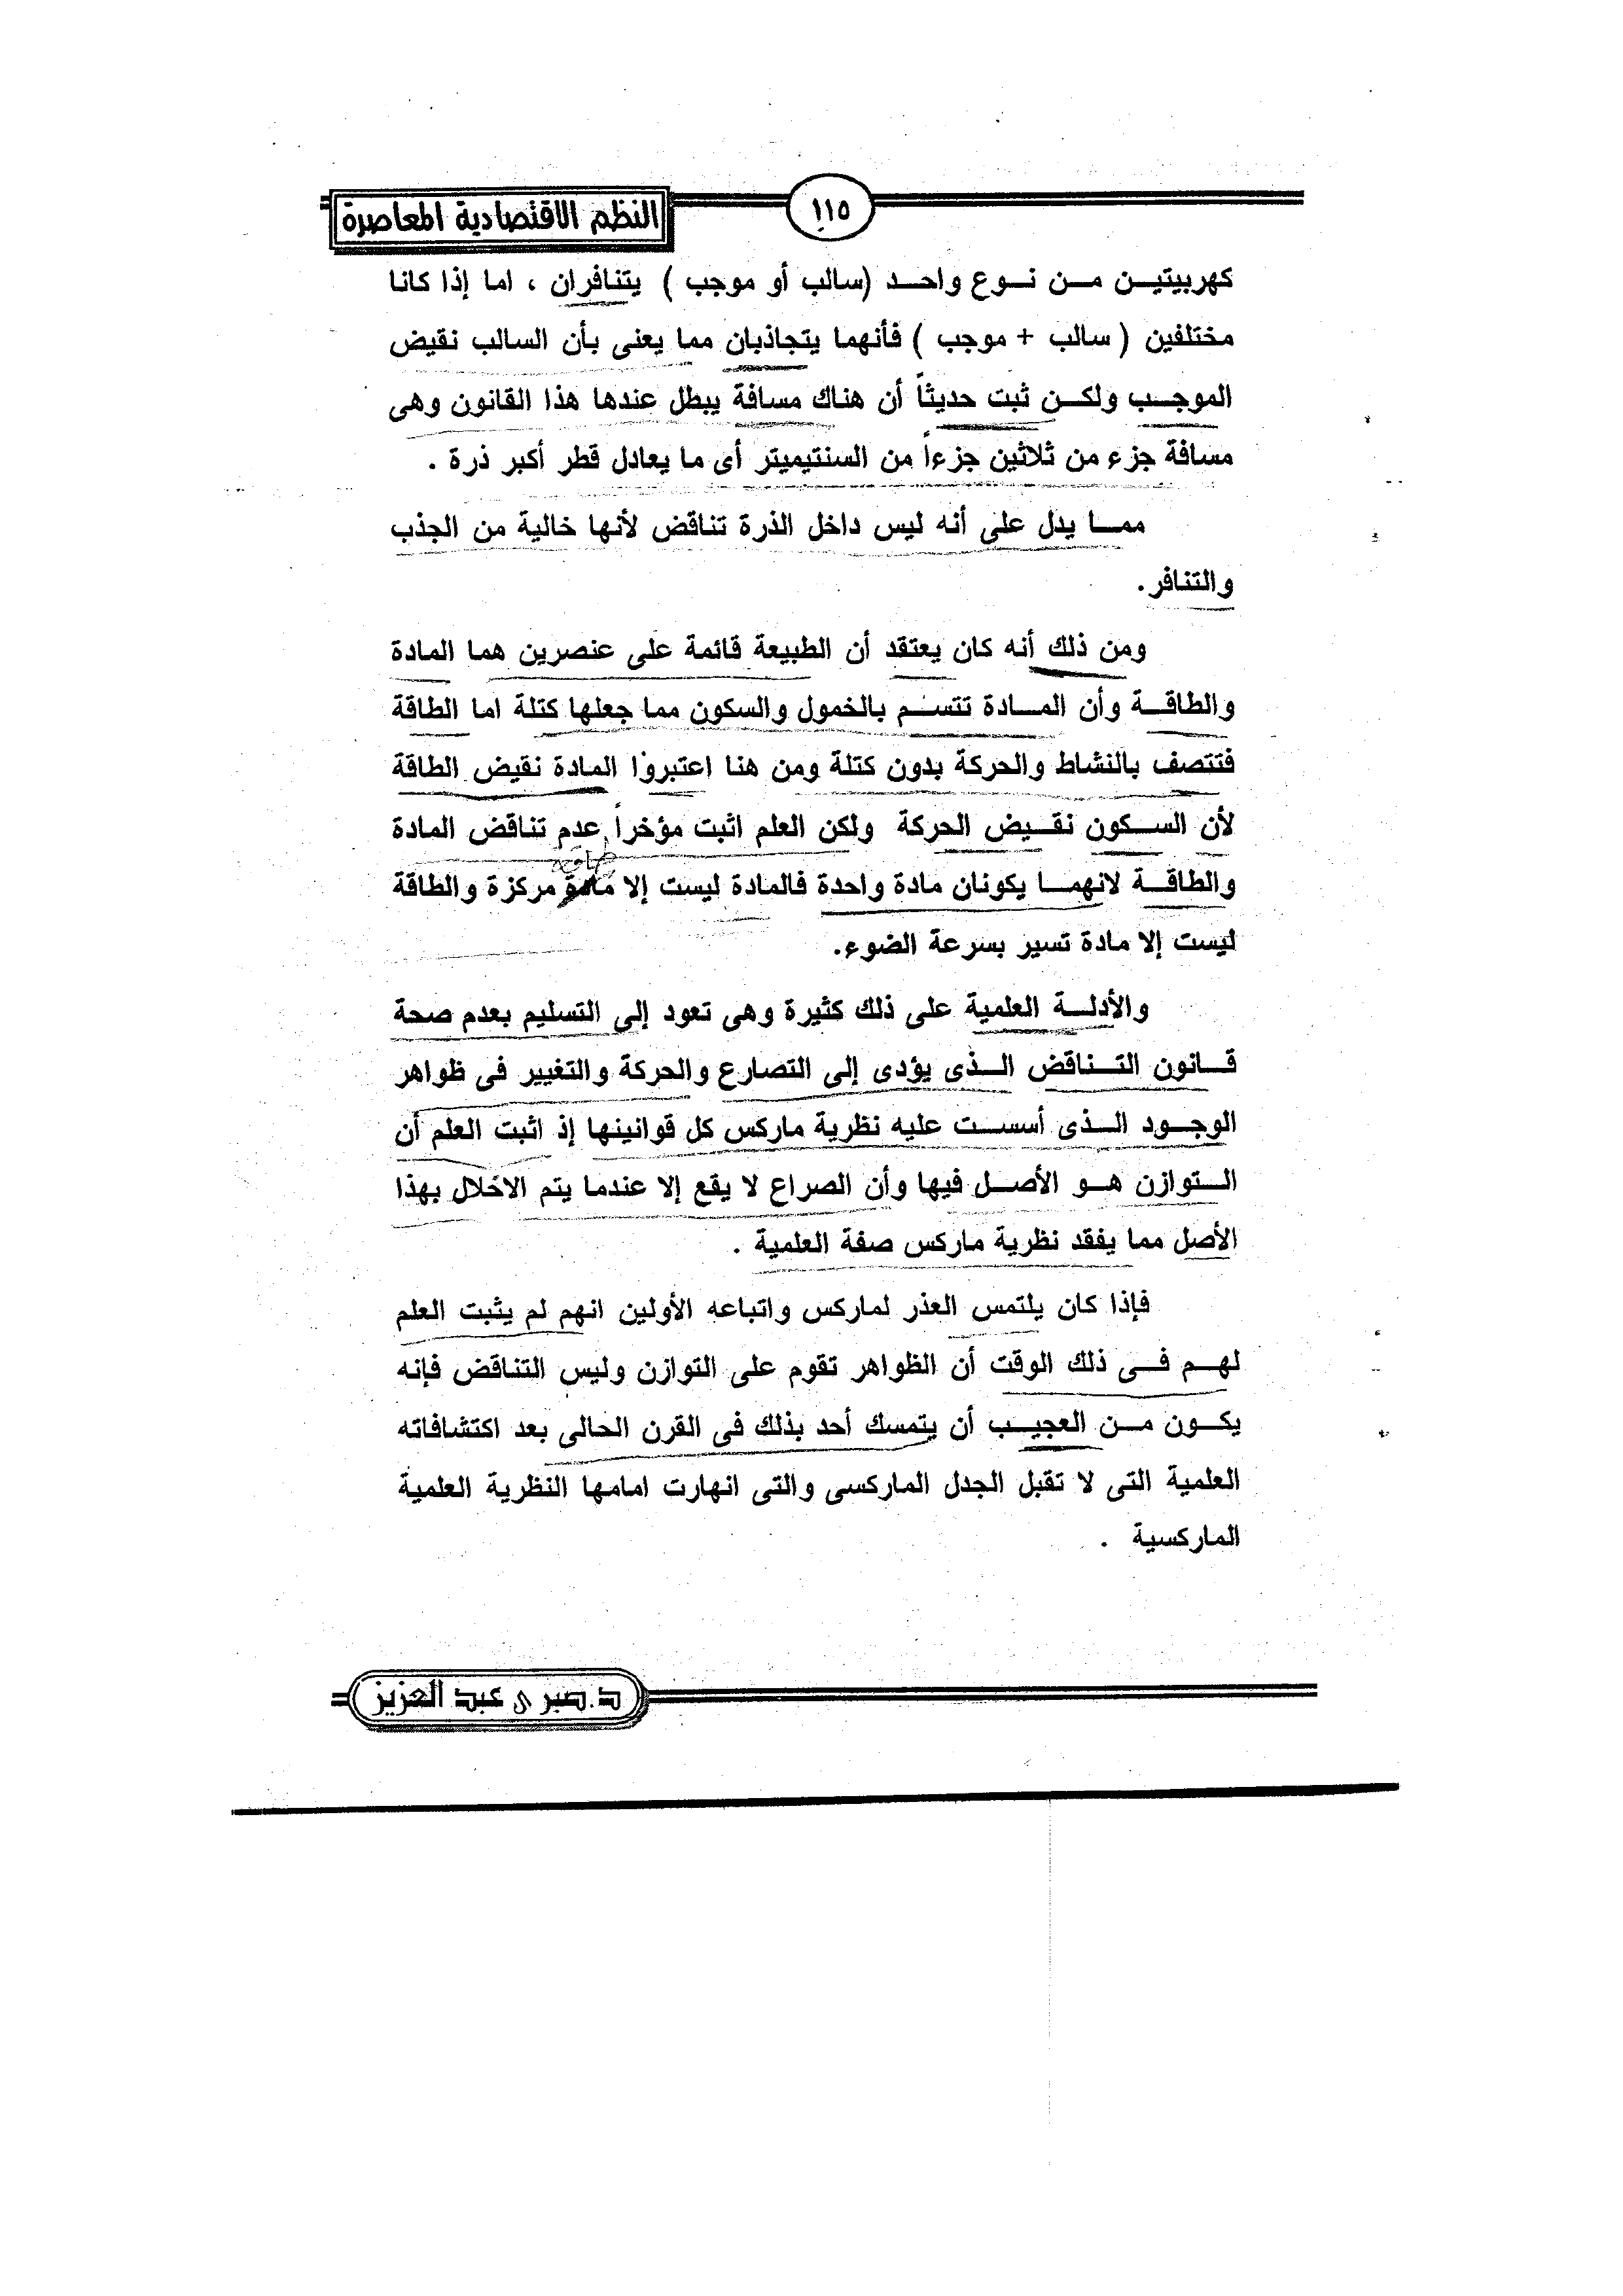 النظم الاقتصادية المعاصرة
١١٥
كهربيتين من نوع واحد (سالب أو موجب ) يتنافران ، اما إذا كانا
مختلفين ( سالب + موجب ) فأنهما يتجاذبان مما يعنى بأن السالب نقيض
الموجب ولكن ثبت حديثاً أن هناك مسافة يبطل عندها هذا القانون وهى
مسافة جزء من ثلاثين جزءاً من السنتيميتر أى ما يعادل قطر أكبر ذرة .
مما يدل على أنه ليس داخل الذرة تناقض لأنها خالية من الجذب
والتنافر.
ومن ذلك أنه كان يعتقد أن الطبيعة قائمة على عنصرين هما المادة
والطاقة وأن المادة تتسم بالخمول والسكون مما جعلها كتلة اما الطاقة
فتتصف بالنشاط والحركة بدون كتلة ومن هنا اعتبروا المادة نقيض الطاقة
لأن السكون نقيض الحركة ولكن العلم اثبت مؤخراً عدم تناقض المادة
طاقة
والطاقة لانهما يكونان مادة واحدة فالمادة ليست إلا مادة مركزة والطاقة
ليست إلا مادة تسير بسرعة الضوء.
والأدلة العلمية على ذلك كثيرة وهى تعود إلى التسليم بعدم صحة
قانون التناقض الذى يؤدى إلى التصارع والحركة والتغيير فى ظواهر
الوجود الذى أسست عليه نظرية ماركس كل قوانينها إذ اثبت العلم أن
التوازن هو الأصل فيها وأن الصراع لا يقع إلا عندما يتم الاخلال بهذا
الأصل مما يفقد نظرية ماركس صفة العلمية .
فإذا كان يلتمس العذر لماركس واتباعه الأولين انهم لم يثبت العلم
لهم فى ذلك الوقت أن الظواهر تقوم على التوازن وليس التناقض فإنه
يكون من العجيب أن يتمسك أحد بذلك فى القرن الحالى بعد اكتشافاته
العلمية التى لا تقبل الجدل الماركسى والتى انهارت امامها النظرية العلمية
الماركسية .
د. صبرى عبد العزيز